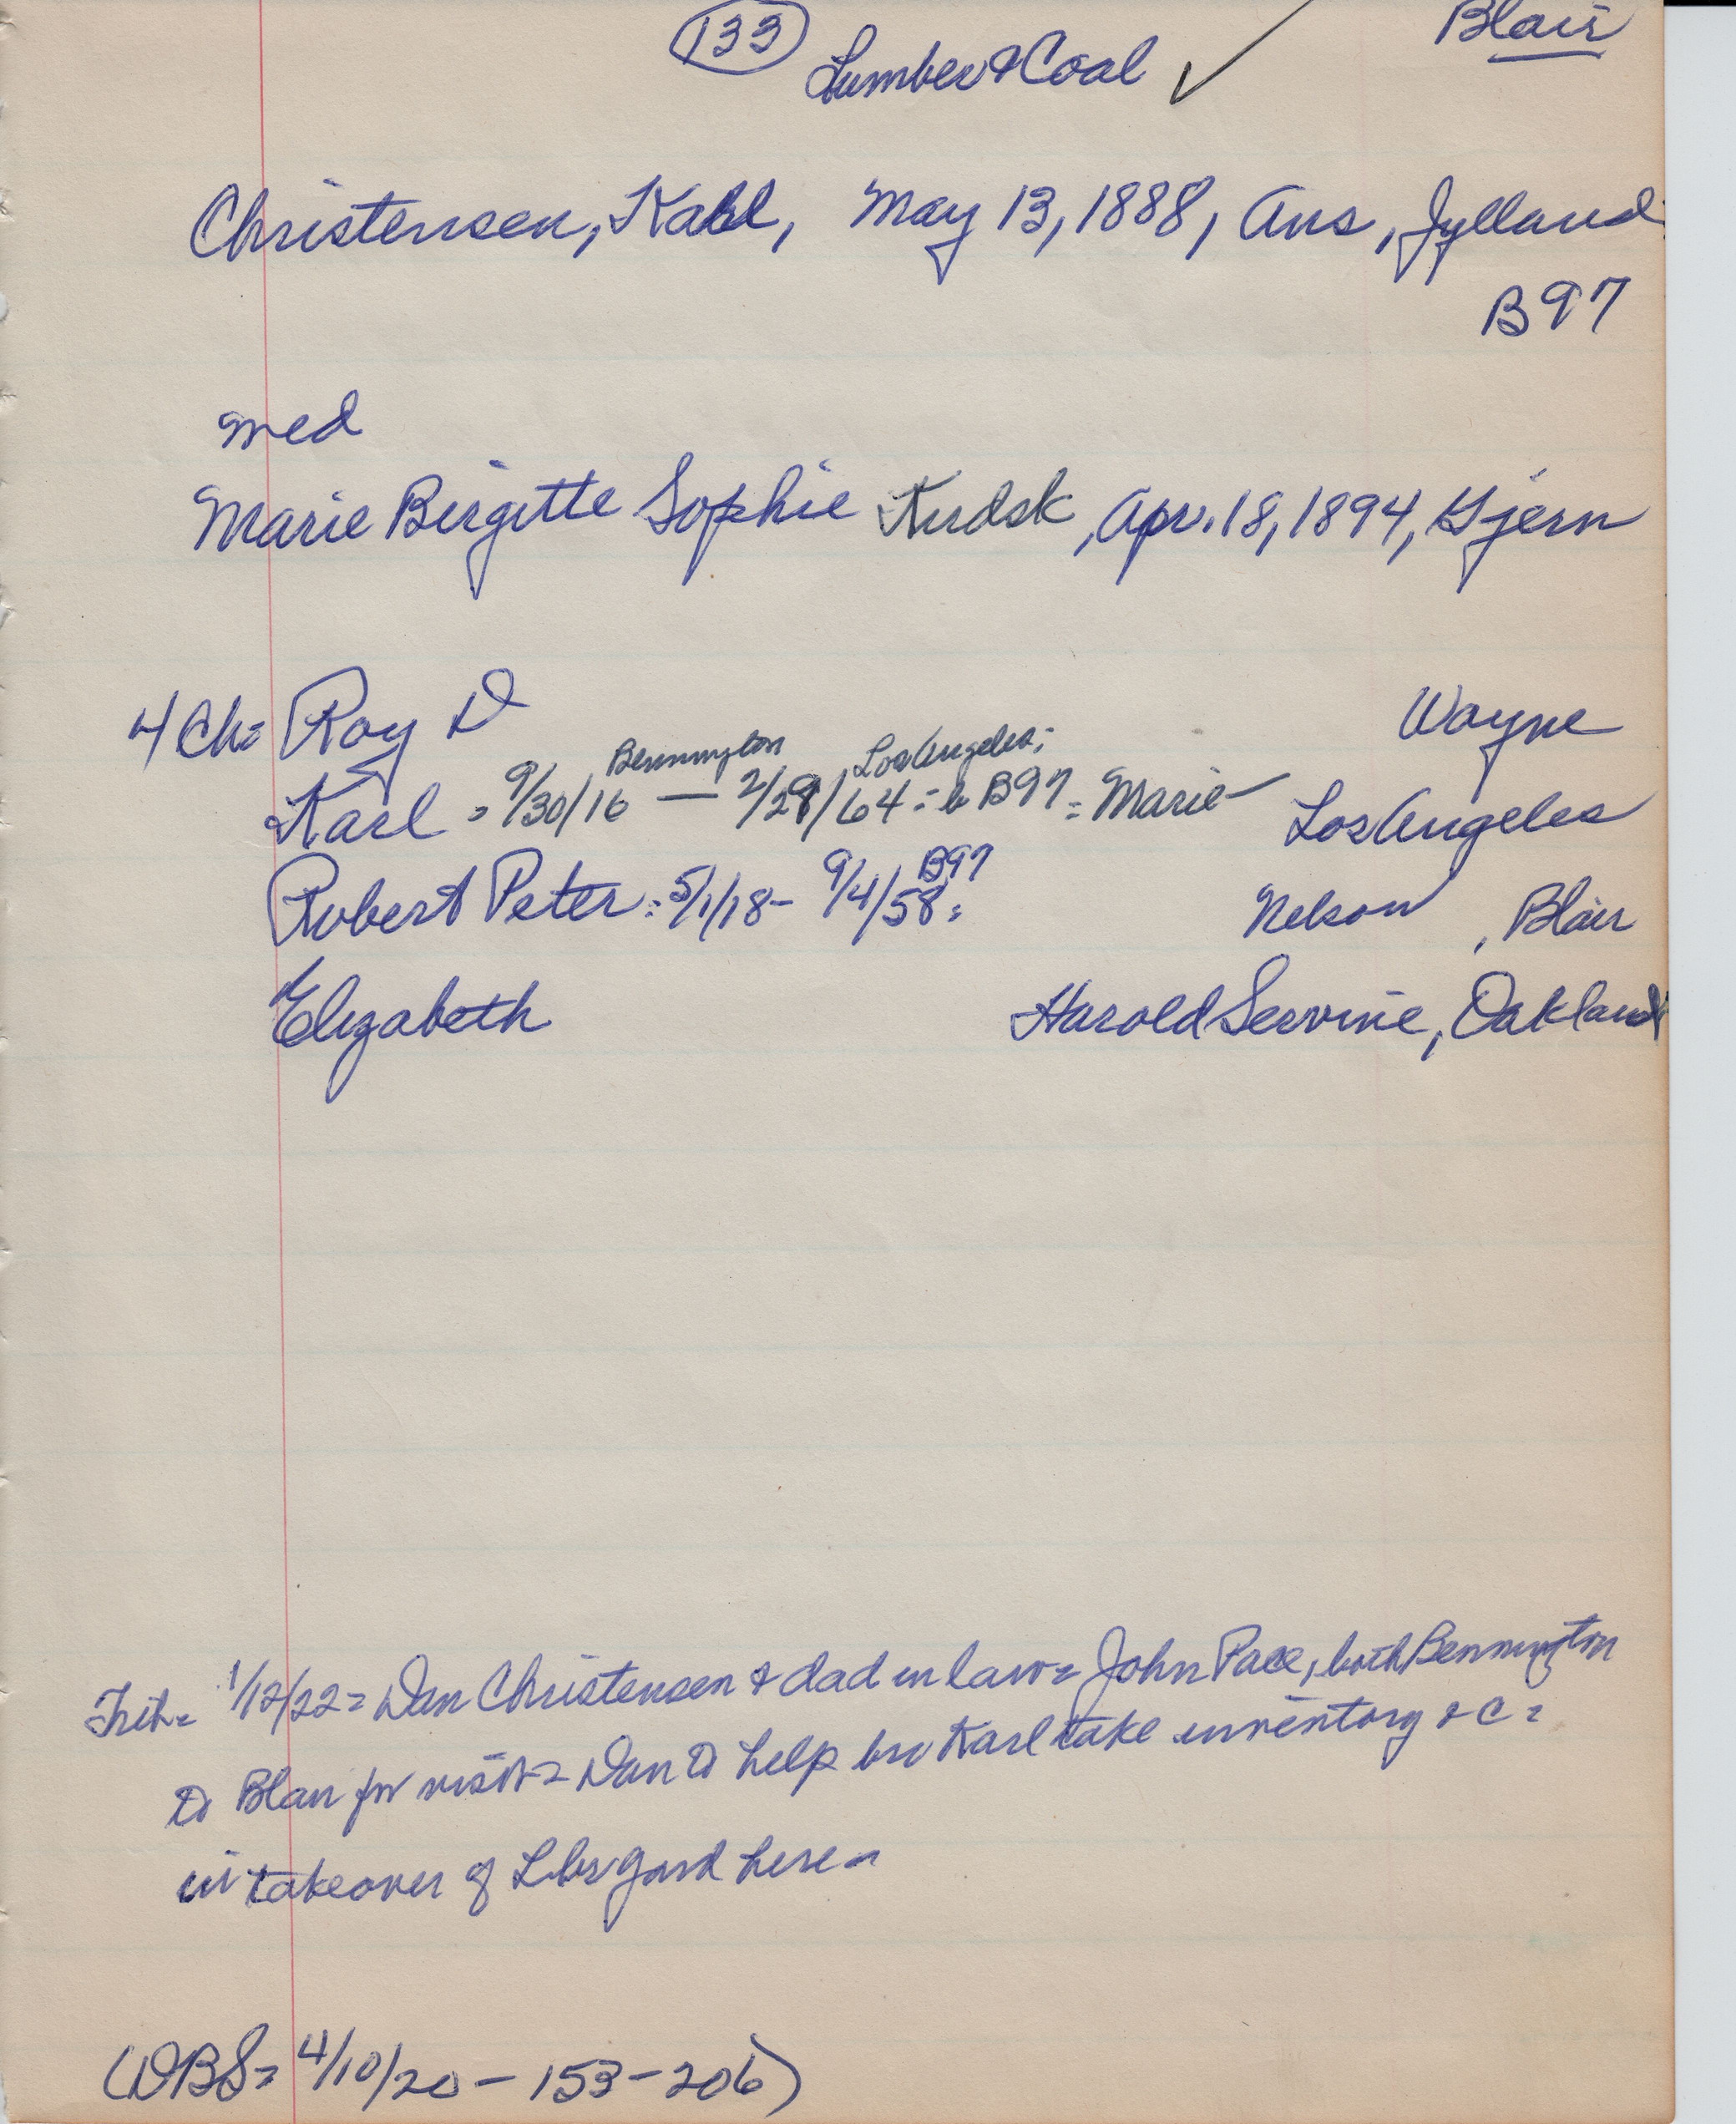 133
Blair
Lumber & Coal ✓
Christensen, Karl, May 13, 1888, Ans, Jylland
B97
med
Marie Birgitte Sophie Kudsk, Apr. 18, 1894, Gjern
4 Ch= Roy D Wayne
Bennington Los Angeles;
Karl = 9/30/16 — 2/29/64 = b B97 = Marie — Los Angeles
B97
Robert Peter = 5/1/18 - 9/4/58 = Nelson, Blair
Elizabeth Harold Servine, Oakland
Trib= 1/12/22 = Dan Christensen & dad in law = John Pace, both Bennington
to Blair for visit = Dan to help bro Karl take inventory & C =
in takeover of Lbr yard here -
(DBS= 4/10/20 - 153 - 206)